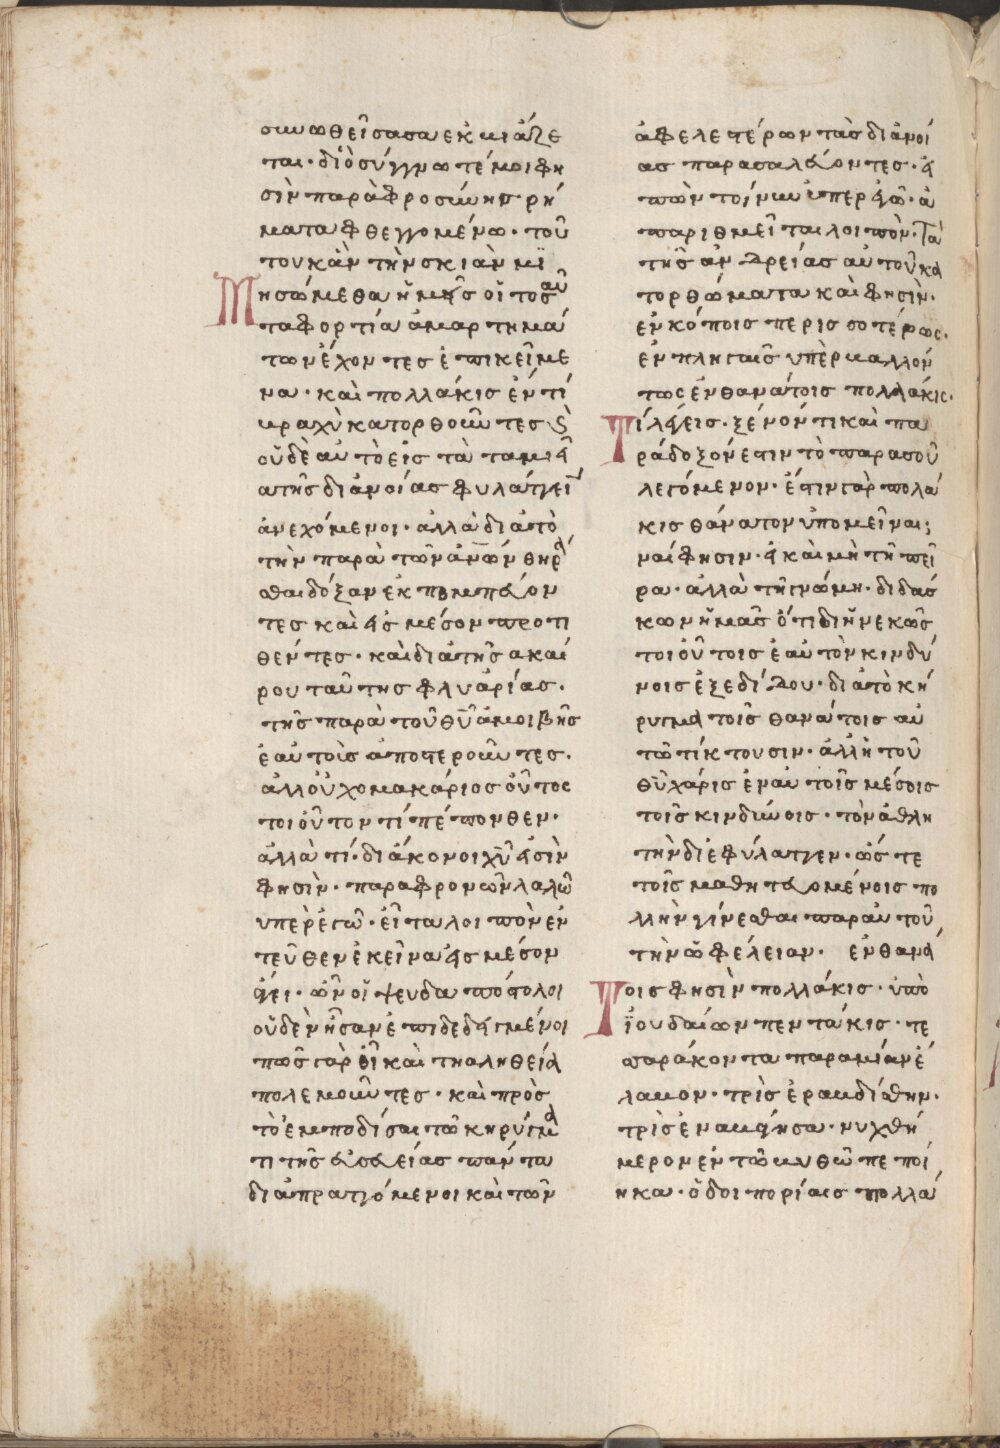 συνωθεῖσασα ἐκβιάζε
ται· διὸ σύγγνωτέ μοι φη
σὶν παρὰ φροσύνης ῥή
ματα φθεγγομένω· τοῦ
τον κἂν τὴν σκιὰν μι
μησώμεθα ἡμεῖς οἱ τοσαῦ
τα φορτία ἁμαρτημά
των ἔχοντες ἐπικείμε
να· καὶ πολλάκις ἔν τι
βραχὺ κατορθοῦντες καὶ
οὐδὲ αὐτὸ εἰς τὰ ταμιεῖ
α τῆς διανοίας φυλάττειν
ἀνεχόμενοι· ἀλλὰ διὰ τὸ
τὴν παρὰ τῶν ἀνων θηρᾶ
σθαι δόξαν ἐκπομπεύον
τες καὶ εἰς μέσον προτι
θέντες· καὶ διὰ τῆς ἀκαί
ρου ταύτης φλυαρίας·
τῆς παρὰ τοῦ θυ ἀμοιβῆς
ἑαυτοὺς ἀποστεροῦντες·
ἀλλ' οὐχ ὁ μακάριος οὗτος
τοιοῦτον τί πέπονθεν·
ἀλλὰ τί· διάκονοι χυ εἰσὶν
φησὶν· παραφρονῶν λαλῶ
ὑπὲρ ἐγώ· εἶτα λοιπὸν ἐν
τεῦθεν ἐκεῖνα εἰς μέσον
ἄγει· ὧν οἱ ψευδαπόστολοι
οὐδὲν ἦσαν ἐπιδεδειγμένοι
πῶς γὰρ οἵ καὶ τῆ ἀληθεία
πολεμοῦντες· καὶ πρὸς
τὸ ἐμποδίσαι τῶ κηρύγμα
τι τῆς εὐσεβείας πάντα
διαπραττόμενοι καὶ τῶν
ἀφελεστέρων τὰς διανοί
ας παρασαλεύοντες· εἰ
πὼν τοίνυν ὑπερ ἐγώ· ἀ
παριθμεῖται λοιπὸν· τὰ
τῆς ἀνδρείας αὐτοῦ κα
τορθώματα καὶ φησὶν·
ἐν κόποις περισσοτέρως·
ἐν πληγαῖς ὑπερβαλλόν
τως ἐν θανάτοις πολλάκις·
Τί λέγεις· ξένόν τι καὶ πα
ράδοξόν ἐστιν τὸ παρὰ σοῦ
λεγόμενον· ἔστιν γὰρ πολλά
κις θάνατον ὑπομεῖναι;
ναί φησιν· εἰ καὶ μὴ τῆ πεί
ρα· ἀλλὰ τῆ γνώμη· διδάσ
κων ἡμᾶς ὅτι διηνεκῶς
τοιούτοις ἑαυτὸν κινδύ
νοις ἐξεδίδου· διὰ τὸ κή
ρυγμα τοῖς θανάτοις αὐ
τῶ τίκτουσιν· ἀλλ' ἡ τοῦ
θυ χάρις ἐν αὐτοῖς μέσοις
τοῖς κινδύνοις· τὸν ἀθλη
τὴν διεφύλαττεν· ὥστε
τοῖς μαθητευομένοις πο
λλὴν γίνεσθαι παρ' αὐτοῦ
τὴν ὠφέλειαν· ἐν θανά
τοις φησὶν πολλάκις· ὑπὸ
ἰουδαίων πεντάκις· τε
σσαράκοντα παρα μίαν ἔ
λαβον· τρὶς ἐραβδίσθην·
τρὶς ἐναυάγησα· νυχθή
μερον ἐν τῶ βυθῶ πεποί
ηκα· ὁδοιπορίαις πολλά